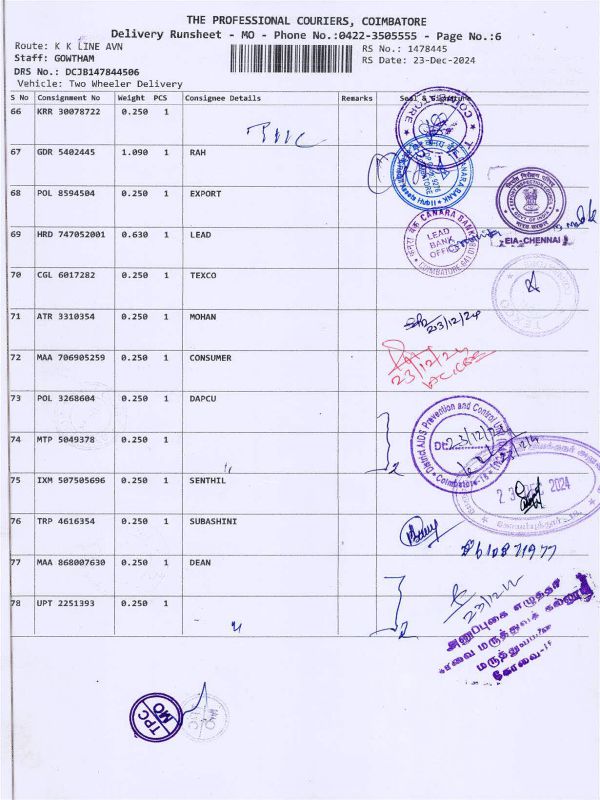 THE PROFESSIONAL COURIERS, COIMBATORE
Delivery Runsheet - MO - Phone No.:0422-3505555 - Page No.:6
Route: K K LINE AVN
RS No.: 1478445
Staff: GOWTHAM
RS Date: 23-Dec-2024
DRS No.: DCJB147844506
Vehicle: Two Wheeler Delivery
S No Consignment No Weight PCS Consignee Details Remarks Seal & Signature
66 KRR 30078722 0.250 1
67 GDR 5402445 1.090 1 RAH
CANARA BANK
68 POL 8594504 0.250 1 EXPORT
CANARA BANK
LEAD BANK OFFICE
COIMBATORE
69 HRD 747052001 0.630 1 LEAD
EIA-CHENNAI
70 CGL 6017282 0.250 1 TEXCO
TEXCO
71 ATR 3310354 0.250 1 MOHAN
23/12/24
72 MAA 706905259 0.250 1 CONSUMER
23/12/24
73 POL 3268604 0.250 1 DAPCU
District AIDS Prevention and Control
Coimbatore-18
74 MTP 5049378 0.250 1
2
75 IXM 507505696 0.250 1 SENTHIL
2024
76 TRP 4616354 0.250 1 SUBASHINI
77 MAA 868007630 0.250 1 DEAN
78 UPT 2251393 0.250 1
23/12
2
கோவை மருத்துவக்
கோவை-18
TPC
MO